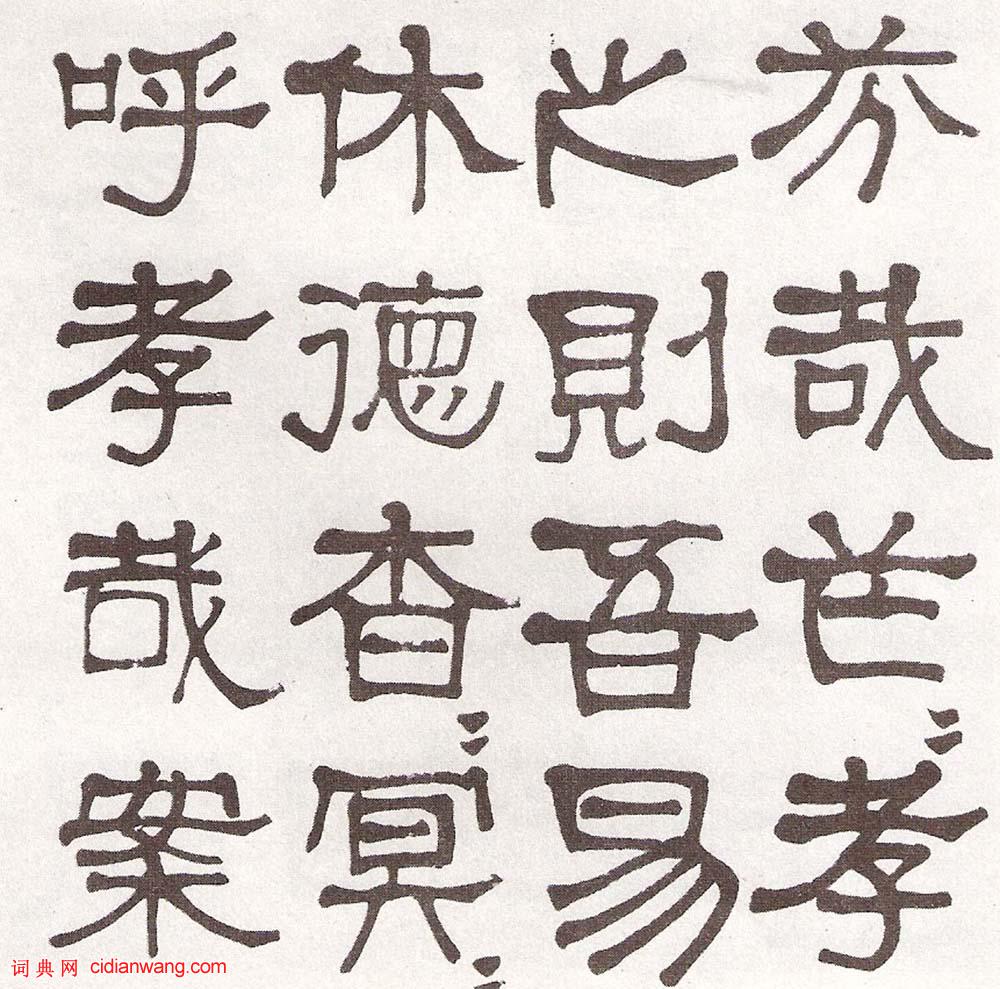 芬哉芒〻孝
之則吾易
休德杳〻冥〻
呼孝哉案
词典网 cidianwang.com